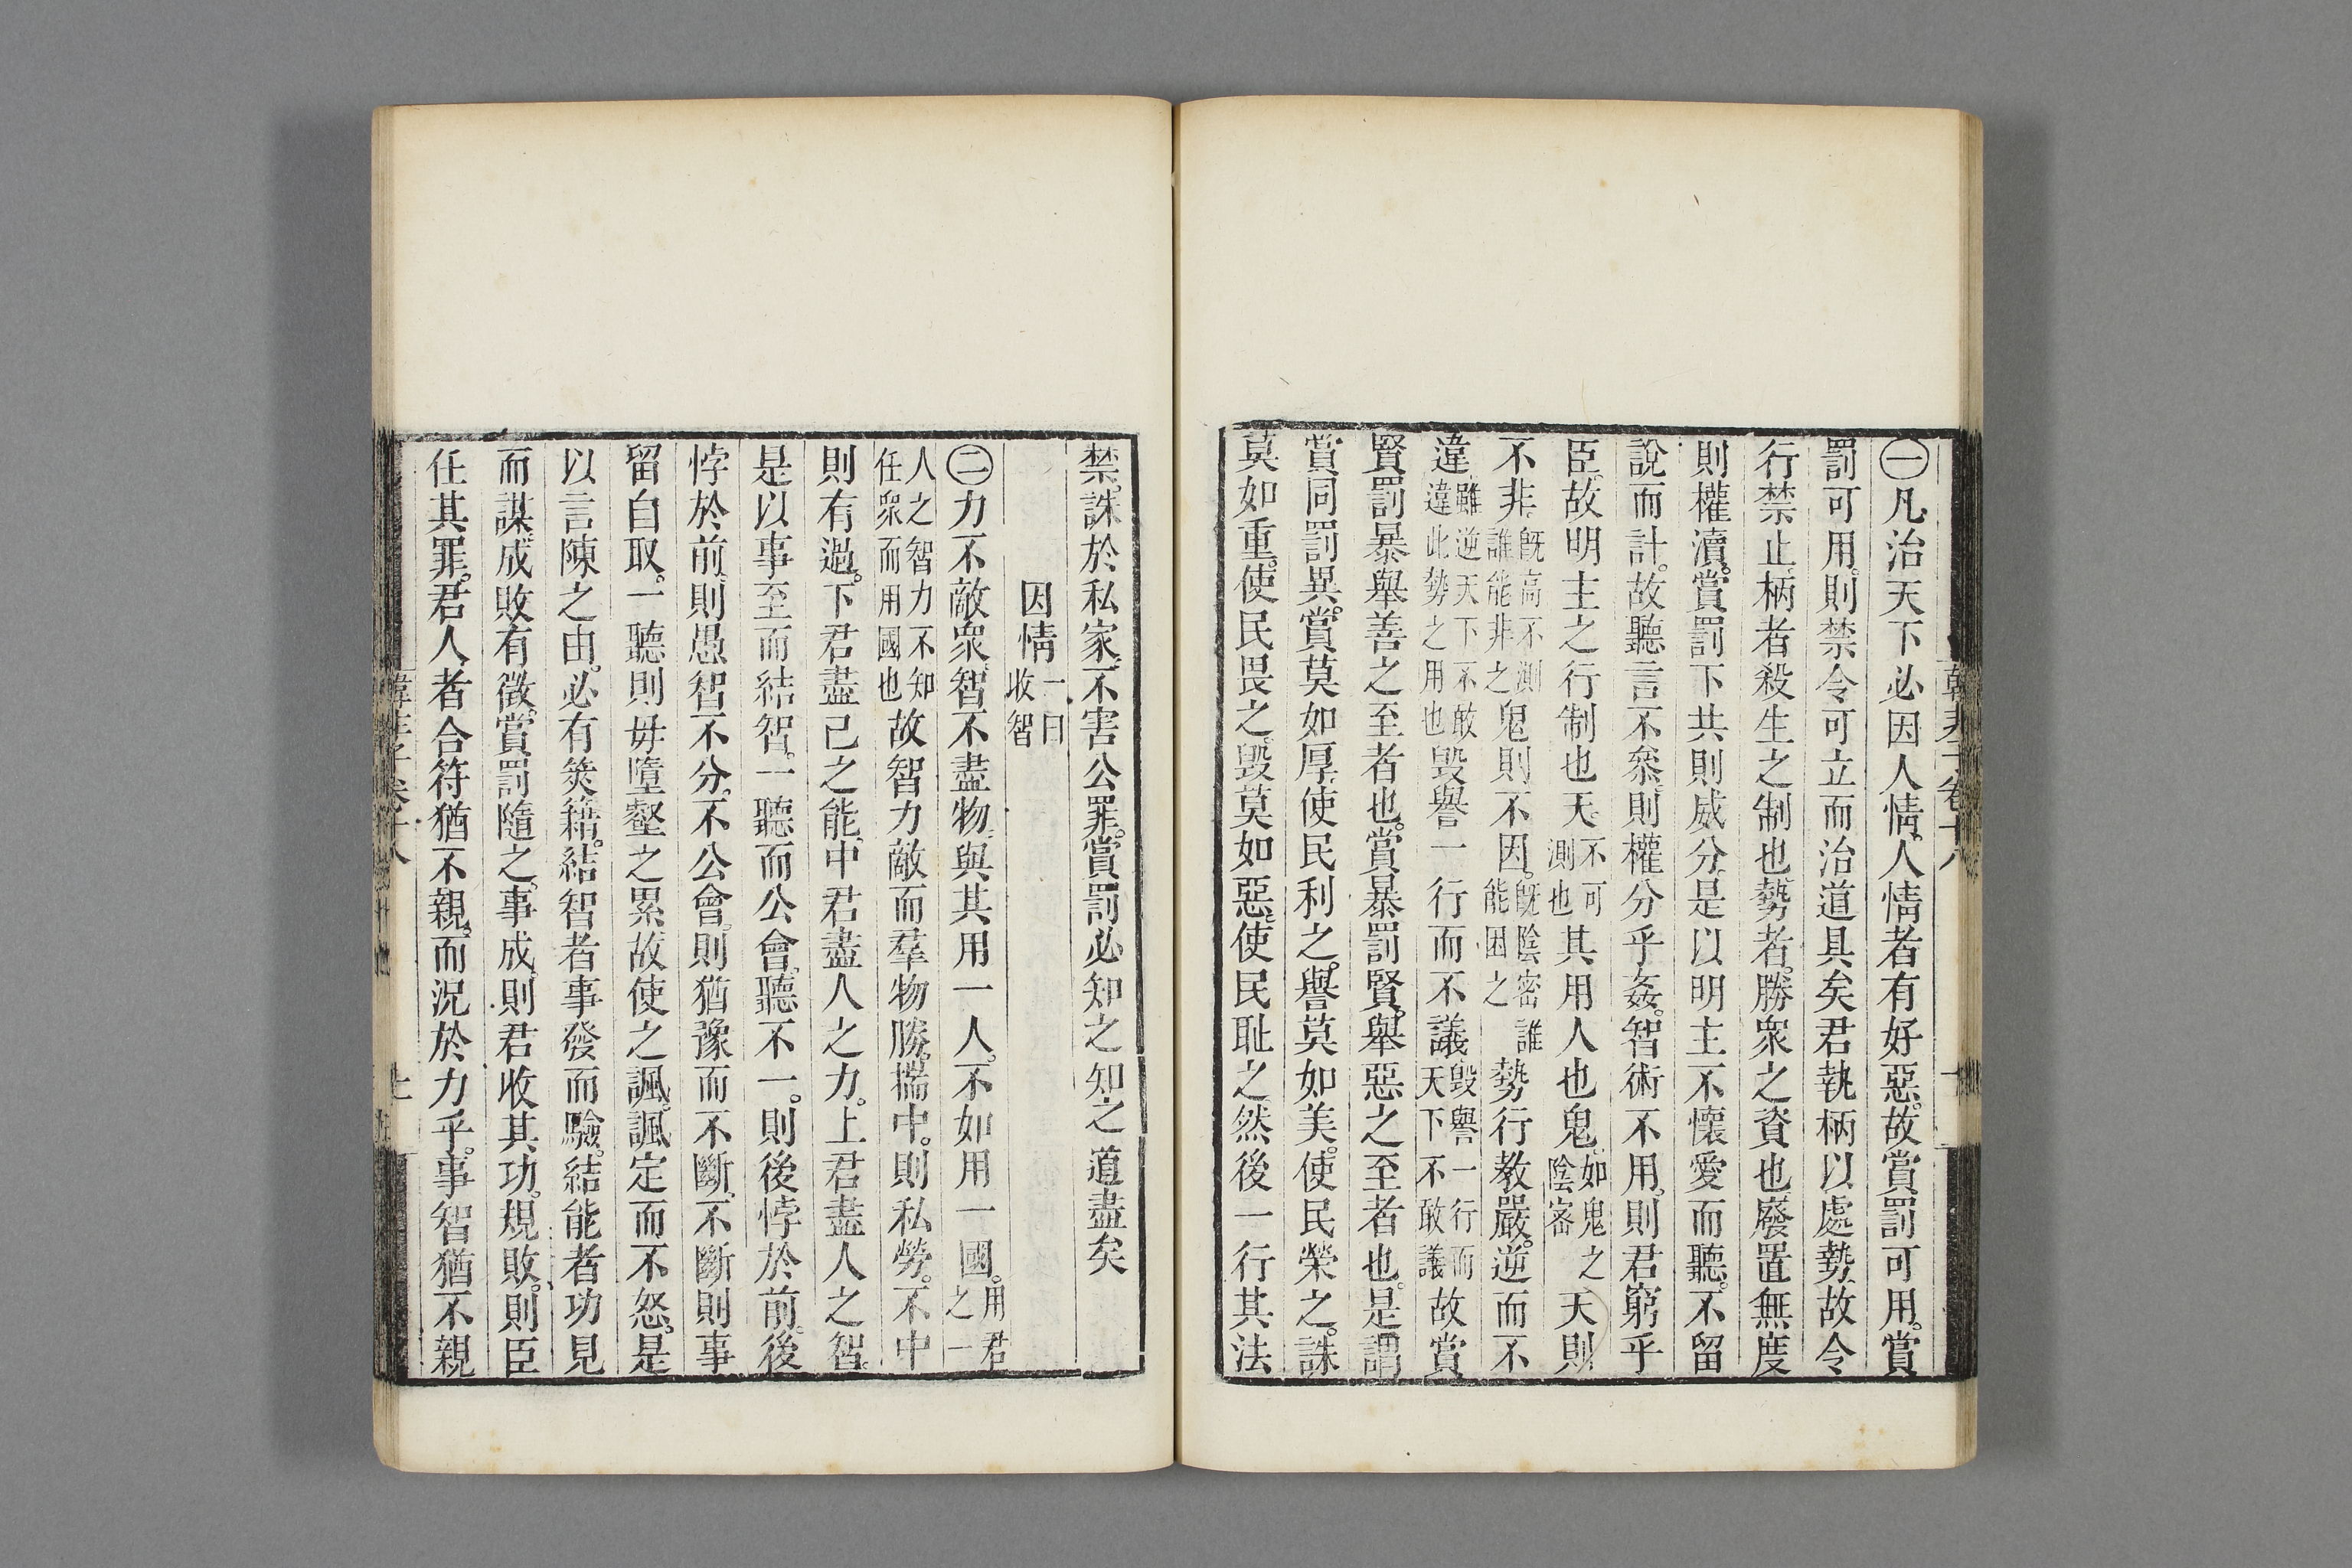 ㊀凡治天下必因人情。人情者有好惡。故賞罰可用。賞
罰可用。則禁令可立而治道具矣君執柄以處勢。故令
行禁止。柄者殺生之制也。勢者。勝衆之資也。廢置無度
則權瀆。賞罰下共則威分。是以明主不懷愛而聽。不留
說而計。故聽言不參。則權分乎姦。智術不用。則君窮乎
臣。故明主之行制也天。不可測也其用人也鬼。如鬼之陰密天則
不非。旣高不測誰能非之鬼則不因。旣陰密誰能困之勢行教嚴。逆而不
違雖逆天下不敢違此勢之用也毀譽一行而不議毀譽一行而天下不敢議故賞
賢罰暴舉善之至者也。賞暴罰賢。舉惡之至者也。是謂
賞同罰異。賞莫如厚。使民利之。譽莫如美。使民榮之。誅
莫如重。使民畏之。毀莫如惡。使民耻之。然後一行其法
禁。誅於私家。不害公罪。賞罰必知之知之道盡矣
因情一曰收智
㊁力不敵衆。智不盡物。與其用一人。不如用一國。用君之一
人之智力不知任衆而用國也故智力敵而羣物勝。揣中。則私勞。不中
則有過。下君盡己之能。中君盡人之力。上君盡人之智。
是以事至而結智。一聽而公會。聽不一。則後悖於前。後
悖於前。則愚智不分。不公會。則猶豫而不斷。不斷則事
留自取。一聽則毋墮壑之累故使之諷。諷定而不怒。是
以言陳之由。必有筴籍。結智者事發而驗。結能者功見
而謀。成敗有徵。賞罰隨之。事成。則君收其功。規敗。則臣
任其罪。君人者合符猶不親。而況於力乎。事智猶不親